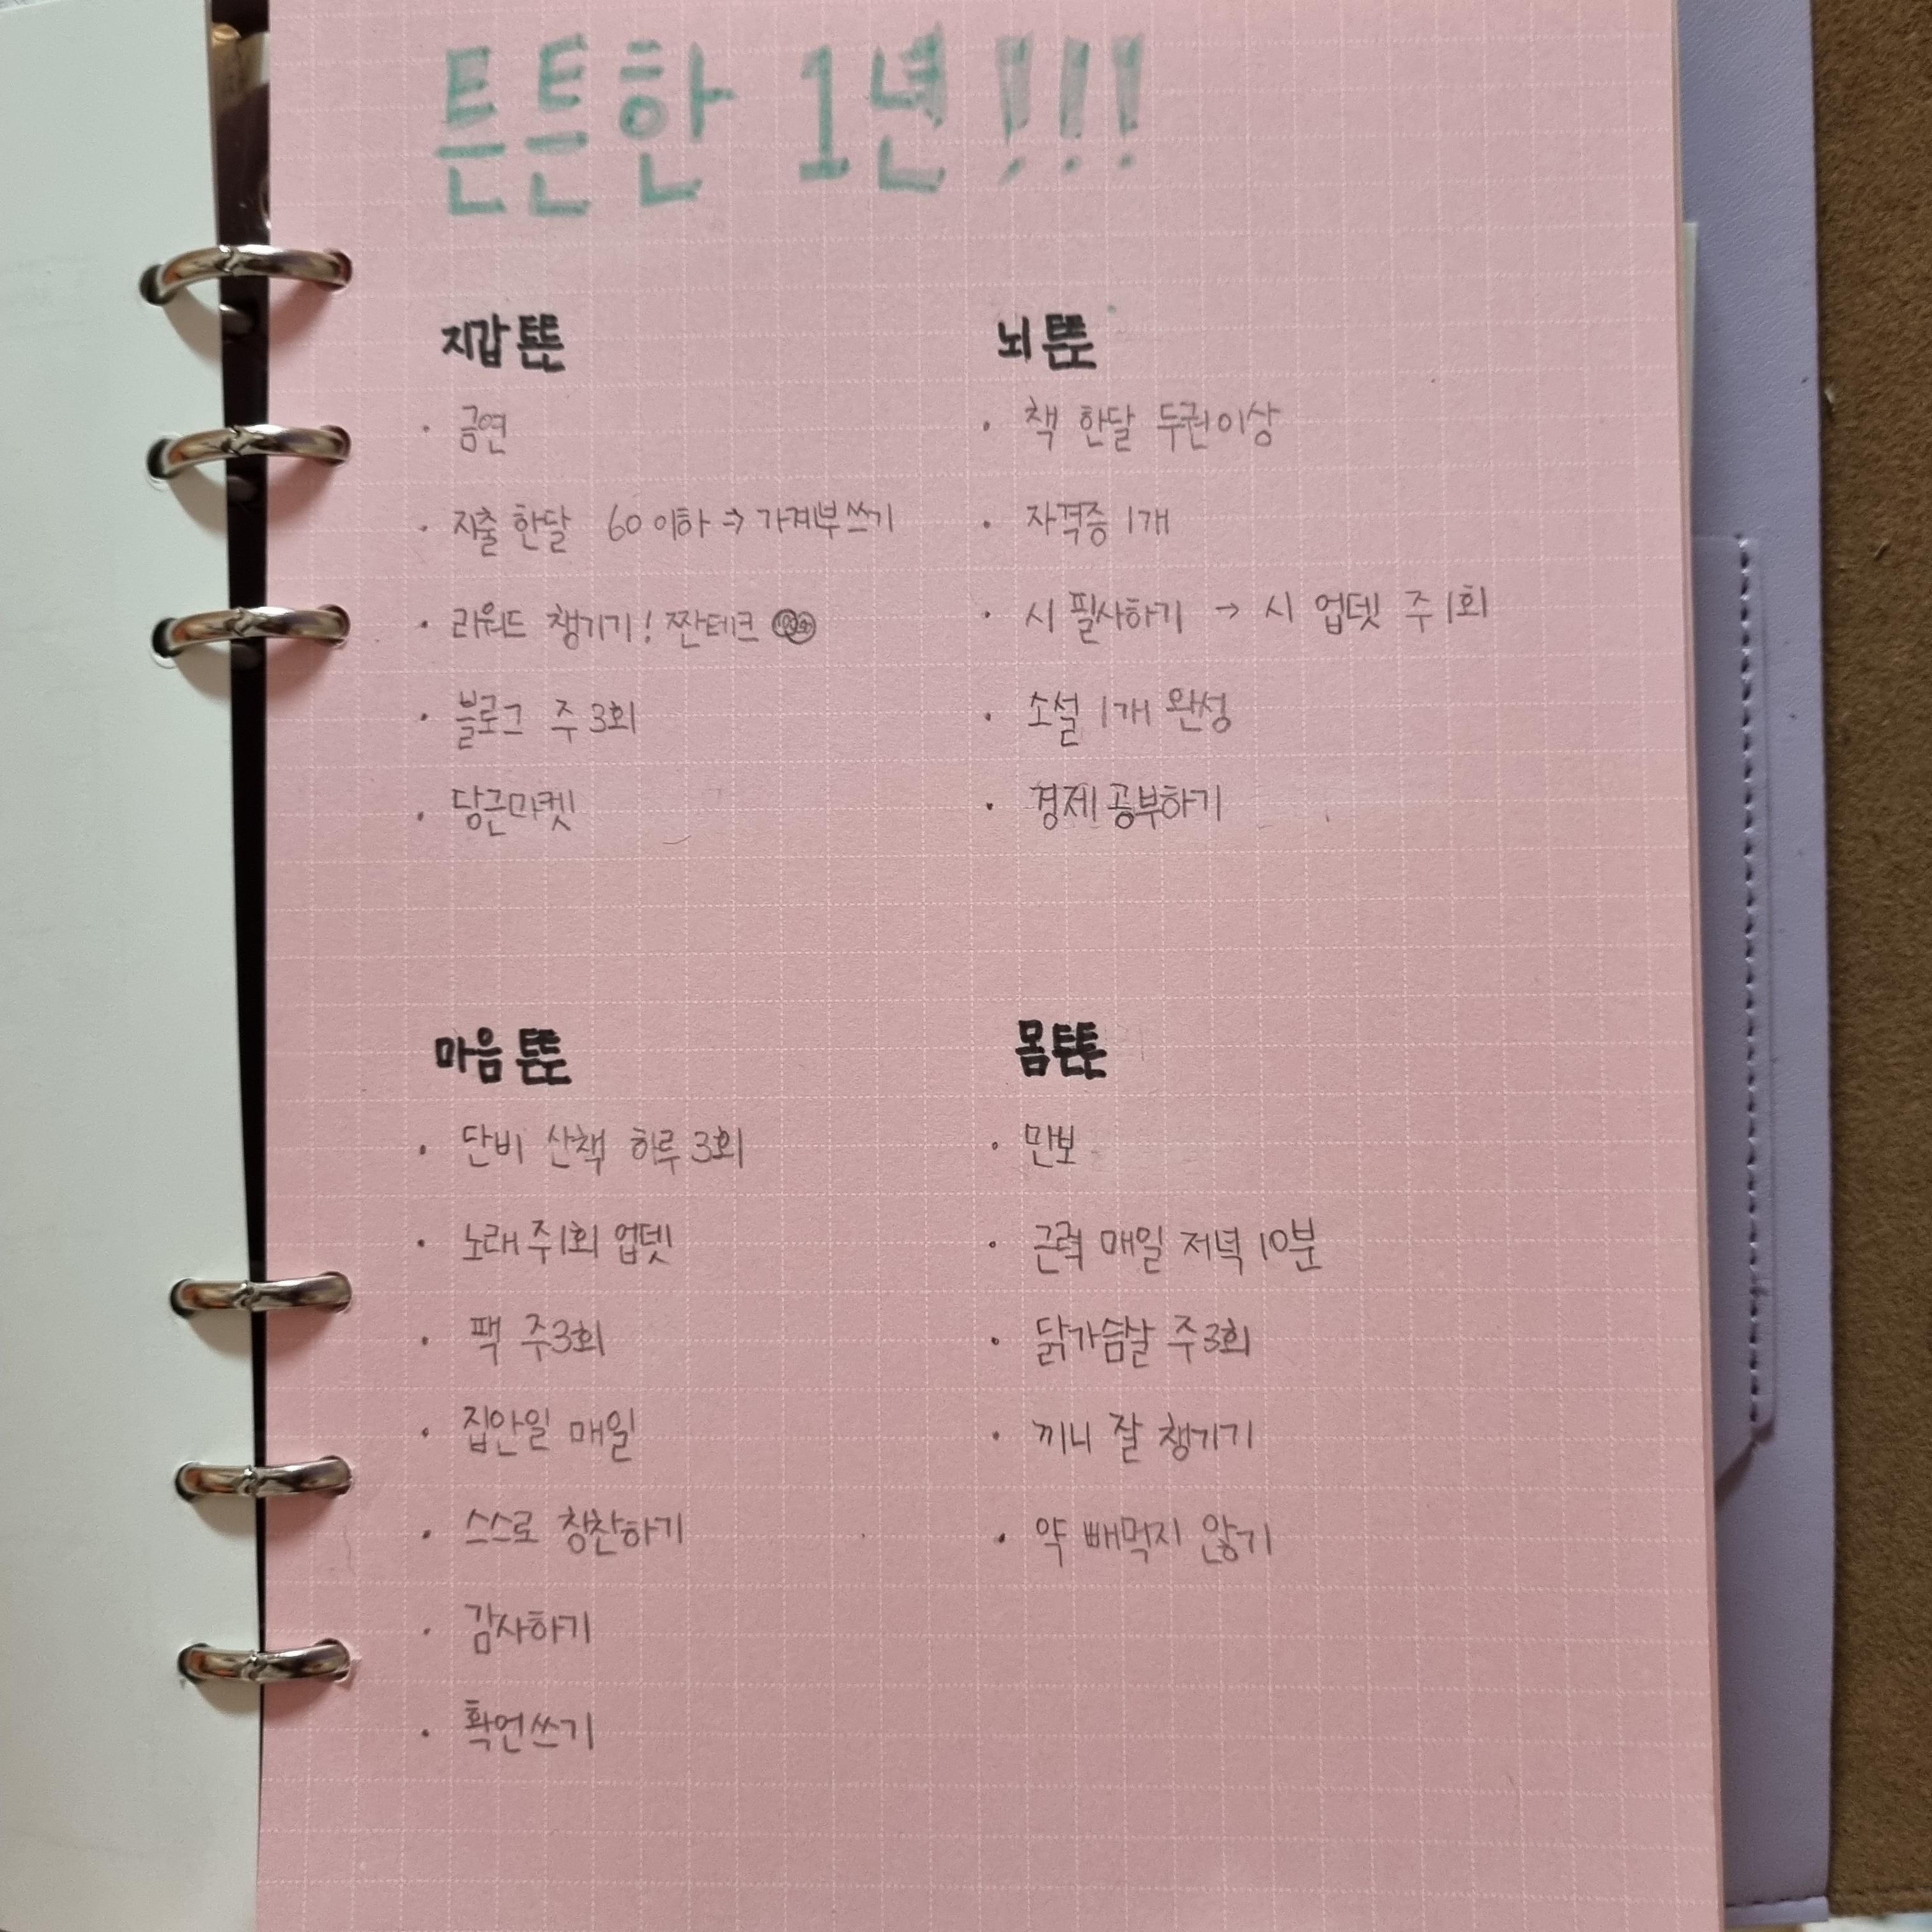 튼튼한 1년!!!
지갑 튼튼
· 금연
· 지출 한달 60 이하 ⇒ 가계부쓰기
· 리워드 챙기기! 짠테크
· 블로그 주 3회
· 당근마켓
뇌 튼튼
· 책 한달 두권이상
· 자격증 1개
· 시 필사하기 → 시 업뎃 주 1회
· 소설 1개 완성
· 경제 공부하기
마음 튼튼
· 단비 산책 하루 3회
· 노래 주1회 업뎃
· 팩 주3회
· 집안일 매일
· 스스로 칭찬하기
· 감사하기
· 확언쓰기
몸 튼튼
· 만보
· 근력 매일 저녁 10분
· 닭가슴살 주 3회
· 끼니 잘 챙기기
· 약 빼먹지 않기